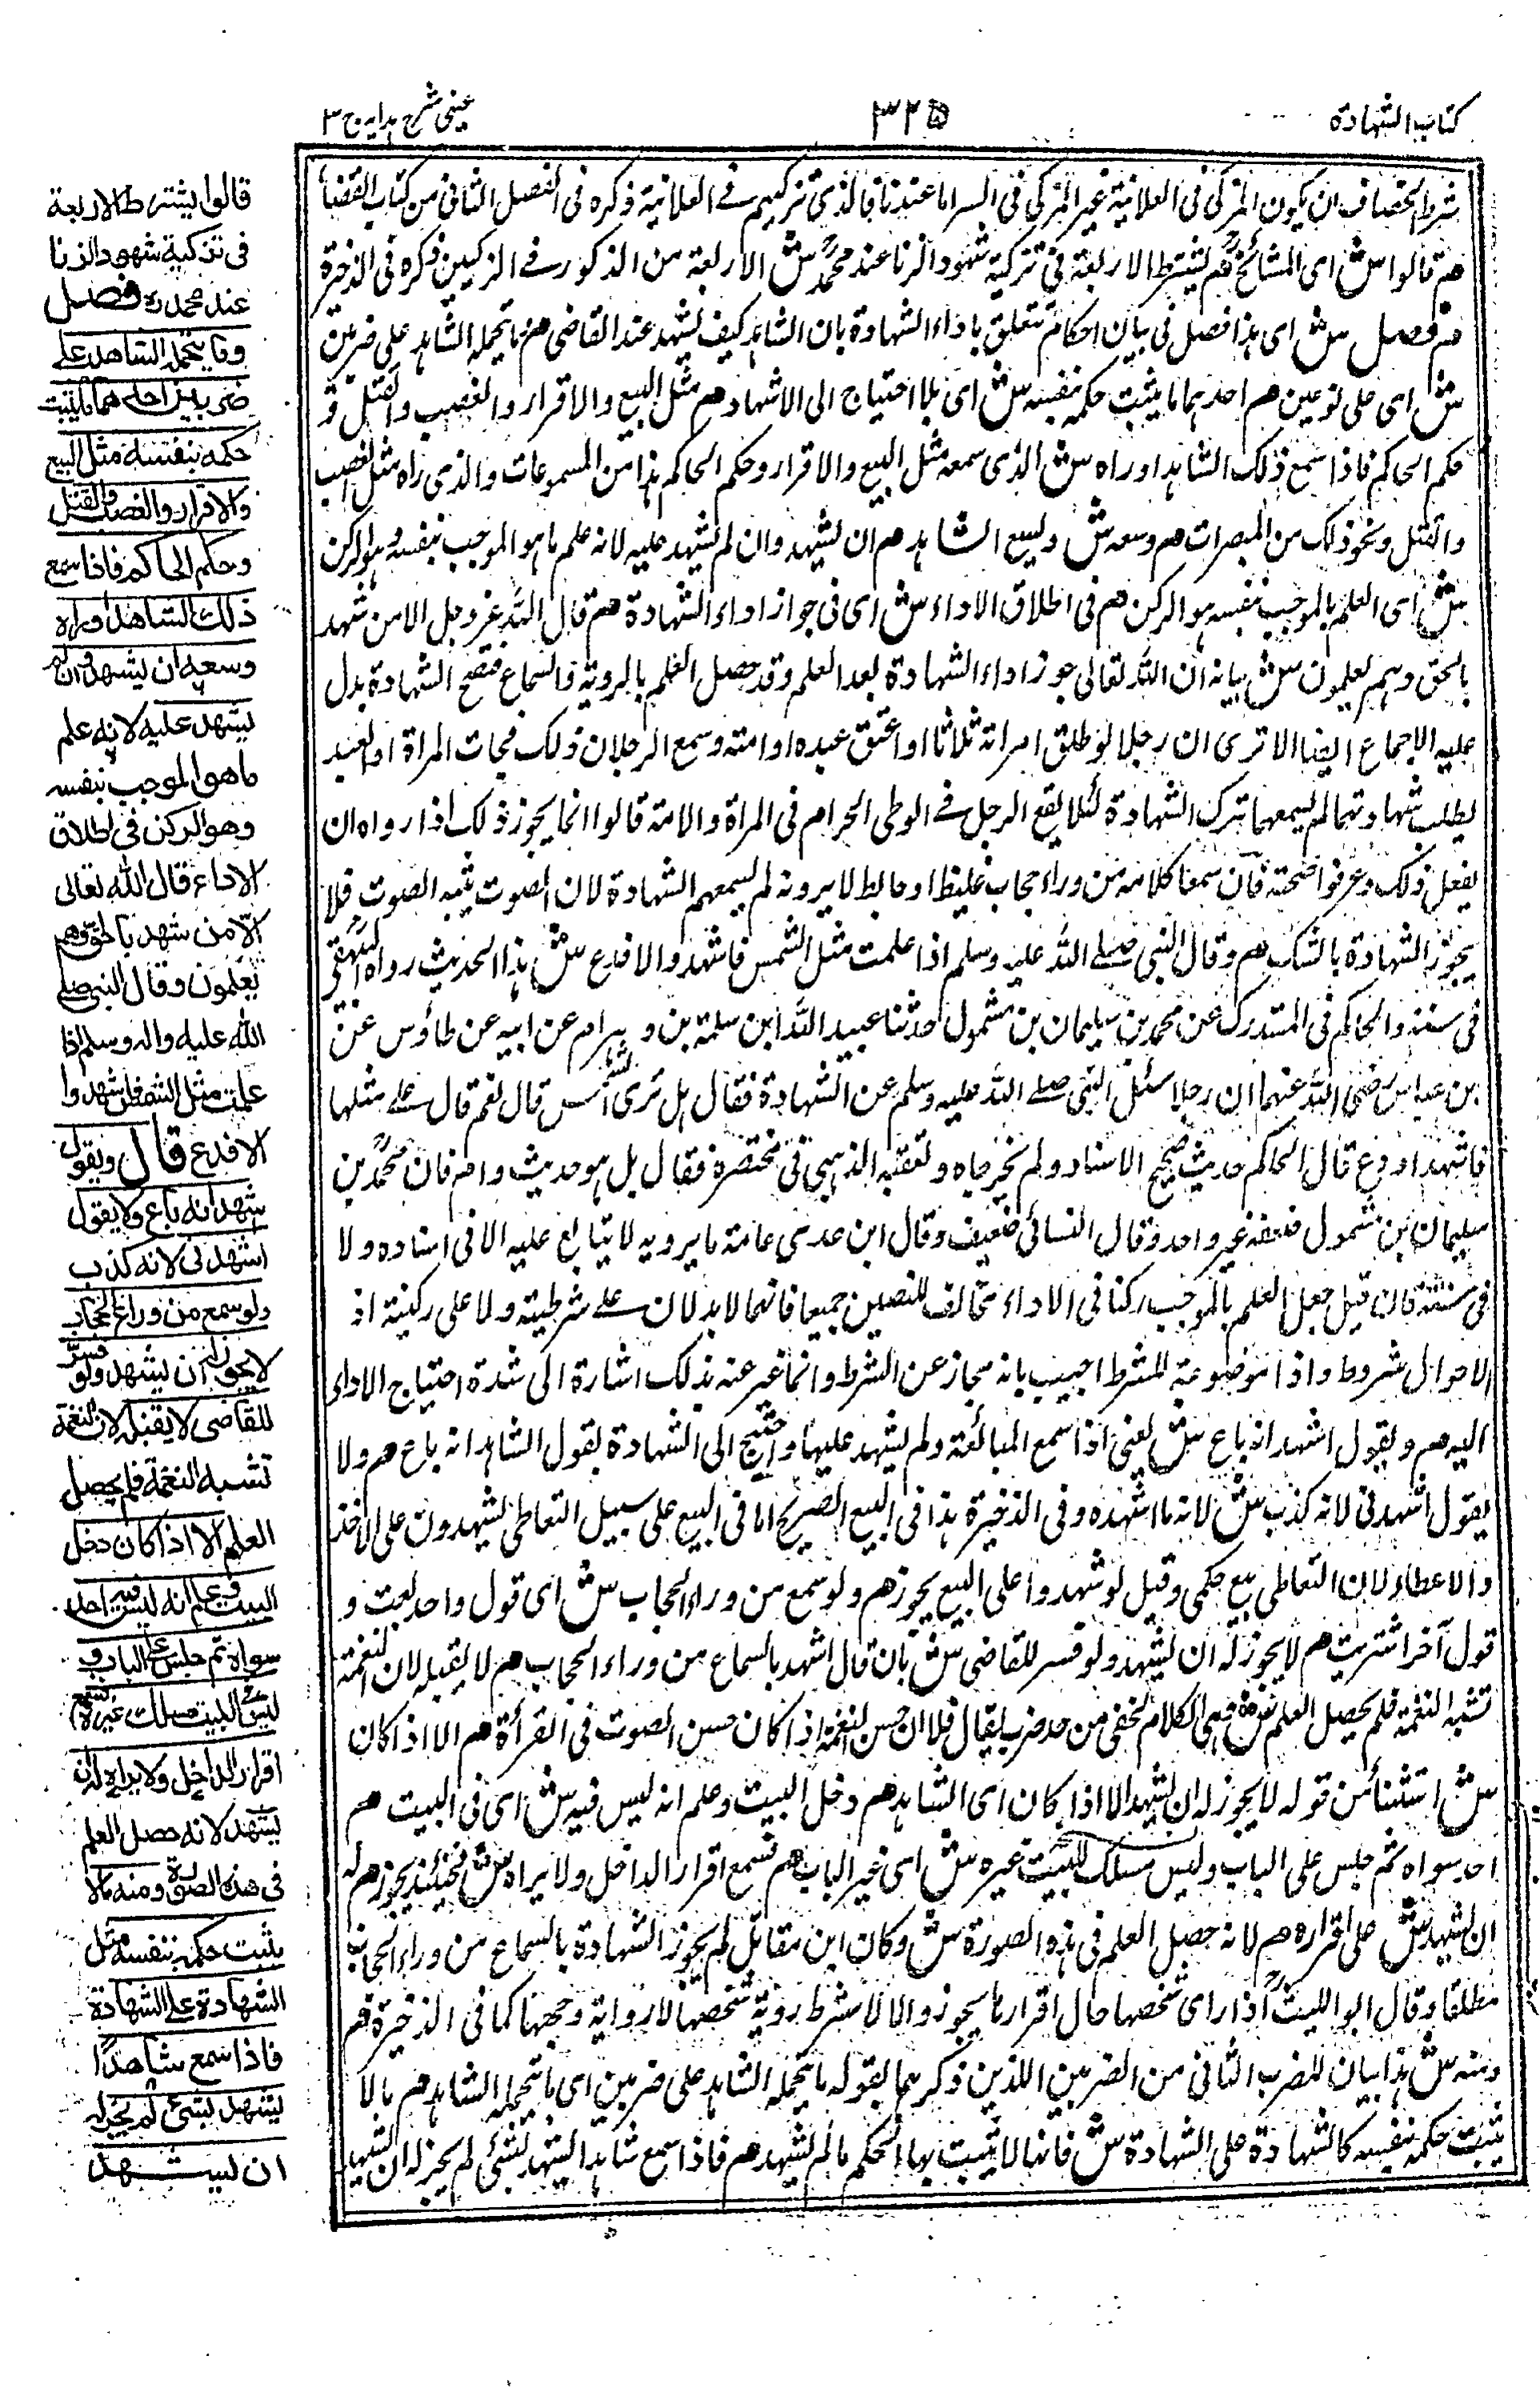 كتاب الشهادة
٣٢٥
عينى شرح هدايه ج ٣
شرط الخصاف ان يكون المزكى فى العلانية غير المزكى فى السر اما عندنا فالذى تزكيهم فى العلانية ذكره فى الفصل الثانى من كتاب القضاء
هم قالوا ش اى المشائخ هم يشترط الاربعة فى تزكية شهود الزنا عند محمد ش الاربعة من الذكور فى المزكين ذكره فى الذخيرة
هم فصل ش اى هذا فصل فى بيان احكام تتعلق باداء الشهادة بان الشاهد كيف يشهد عند القاضى هم ما يتحمله الشاهد على ضربين
ش اى على نوعين هم احدهما ما يثبت حكمه بنفسه ش اى بلا احتياج الى الاشهاد هم مثل البيع والاقرار والغصب والقتل و
حكم الحاكم فاذا سمع ذلك الشاهد او راه ش الذى سمعه مثل البيع والاقرار وحكم الحاكم هذا من المسموعات والذى راه مثل الغصب
والقتل ونحو ذلك من المبصرات هم وسعه ش ويسع الشاهد هم ان يشهد وان لم يشهد عليه لانه علم ما هو الموجب بنفسه وهو الركن
ش اى العلم بالموجب بنفسه هو الركن هم فى اطلاق الاداء ش اى فى جواز اداء الشهادة هم قال الله عز وجل الا من شهد
بالحق وهم يعلمون ش بيانه ان الله تعالى جوز اداء الشهادة بعد العلم وقد حصل العلم بالروية والسماع فتصح الشهادة يدل
عليه الاجماع ايضا الا ترى ان رجلا لو طلق امراته ثلاثا او اعتق عبده او امته وسمع الرجلان ذلك فجات المراة او العبد
يطلب شهادتهما لم يسعهما ترك الشهادة لئلا يقع الرجل فى الوطى الحرام فى المراة والامة قالوا انما يجوز ذلك اذا رواه ان
يفعل ذلك وعرفوا ضحته فان سمعا كلامه من وراء حجاب غليظ او حائط لا يرونه لم يسعهم الشهادة لان الصوت يشبه الصوت فلا
يجوز الشهادة بالشك هم وقال النبى صلى الله عليه وسلم اذا علمت مثل الشمس فاشهد والا فدع ش هذا الحديث رواه البيهقى
فى سننه والحاكم فى المستدرك عن محمد بن سليمان بن مشمول حدثنا عبيد الله ابن سلمة بن وهرام عن ابيه عن طاؤس عن
بن عباس رضى الله عنهما ان رجلا سئل النبى صلى الله عليه وسلم عن الشهادة فقال هل ترى الشمس قال نعم قال على مثلها
فاشهد او دع قال الحاكم حديث صحيح الاسناد ولم يخرجاه وتعقبه الذهبى فى مختصره فقال بل هو حديث واه فان محمد بن
سليمان بن مشمول ضعفه غير واحد وقال النسائى ضعيف وقال ابن عدى عامة ما يرويه لا يتابع عليه الا فى اسناده ولا
فى متنه فان قيل جعل العلم بالموجب ركنا فى الاداء مخالف للنصين جميعا فانهما لا يدلان على شرطيته ولا على ركينة اذ
الاحوال شروط واذا موضوعة للشرط اجيب بانه مجاز عن الشرط وانما غير عنه بذلك اشارة الى شدة احتياج الاداى
اليه هم ويقول اشهد انه باع ش يعنى اذا سمع المبائعة ولم يشهد عليها واحتيج الى الشهادة يقول الشاهد انه باع هم ولا
يقول اشهدنى لانه كذب ش لانه ما اشهده وفى الذخيرة هذا فى البيع الصريح اما فى البيع على سبيل التعاطى يشهدون على الاخذ
والاعطاء لان التعاطى بيع حكمى وقيل لو شهدوا على البيع يجوز هم ولو سمع من وراء الحجاب ش اى قول واحد بعت و
قول آخر اشتريت هم لا يجوز له ان يشهد ولو فسر للقاضى ش بان قال اشهد بالسماع من وراء الحجاب هم لا يقبله لان النغمة
تشبه النغمة فلم يحصل العلم ش هى الكلام الخفى من حد ضرب يقال فلان حسن النغمة اذا كان حسن الصوت فى القرأة هم الا اذا كان
ش استثناء من قوله لا يجوز له ان يشهد الا اذا كان اى الشاهد هم دخل البيت وعلم انه ليس فيه ش اى فى البيت هم
احد سواه ثم جلس على الباب وليس مسلك للبيت غيره ش اى غير الباب هم فسمع اقرار الداخل ولا يراه ش فحينئذ يجوز هم له
ان يشهد ش على اقراره هم لانه حصل العلم فى هذه الصورة ش وكان ابن مقاتل لم يجوز الشهادة بالسماع من وراء الحجاب
مطلقا وقال ابو الليث اذا راى شخصها حال اقرارها يجوز والا لا يشرط روية شخصها لا رواية وجهها كما فى الذخيرة هم
ومنه ش هذا بيان للضرب الثانى من الضربين اللذين ذكرهما بقوله ما يتحمله الشاهد على ضربين اى ما يتحمله الشاهد هم ما لا
يثبت حكمه بنفسه كالشهادة على الشهادة ش فانها لا يثبت بها الحكم ما لم يشهد هم فاذا سمع شاهدا يشهد بشئى لم يجز له ان يشهد
قالوا يشترط الاربعة
فى تزكية شهود الزنا
عند محمد ره فصل
وما يتحمله الشاهد على
ضربين احدهما ما يثبت
حكمه بنفسه مثل البيع
والاقرار والغصب والقتل
وحكم الحاكم فاذا سمع
ذلك الشاهد او راه
وسعه ان يشهد وان لم
يشهد عليه لانه علم
ما هو الموجب بنفسه
وهو الركن فى اطلاق
الاداء قال الله تعالى
الا من شهد بالحق وهم
يعلمون وقال النبى صلى
الله عليه واله وسلم اذا
علمت مثل الشمس فاشهد وا
لا فدع قال ويقول
اشهد انه باع ولا يقول
اشهدنى لانه كذب
ولو سمع من وراء الحجاب
لا يجوز له ان يشهد ولو فسر
للقاضى لا يقبله لان النغمة
تشبه النغمة فلم يحصل
العلم الا اذا كان دخل
البيت وعلم انه ليس فيه احد
سواه ثم جلس على الباب و
ليس للبيت مسلك غيره فسمع
اقرار الداخل ولا يراه له ان
يشهد لانه حصل العلم
فى هذه الصورة ومنه ما لا
يثبت حكمه بنفسه مثل
الشهادة على الشهادة
فاذا سمع شاهدًا
يشهد بشئ لم يجز له
ان يشهد